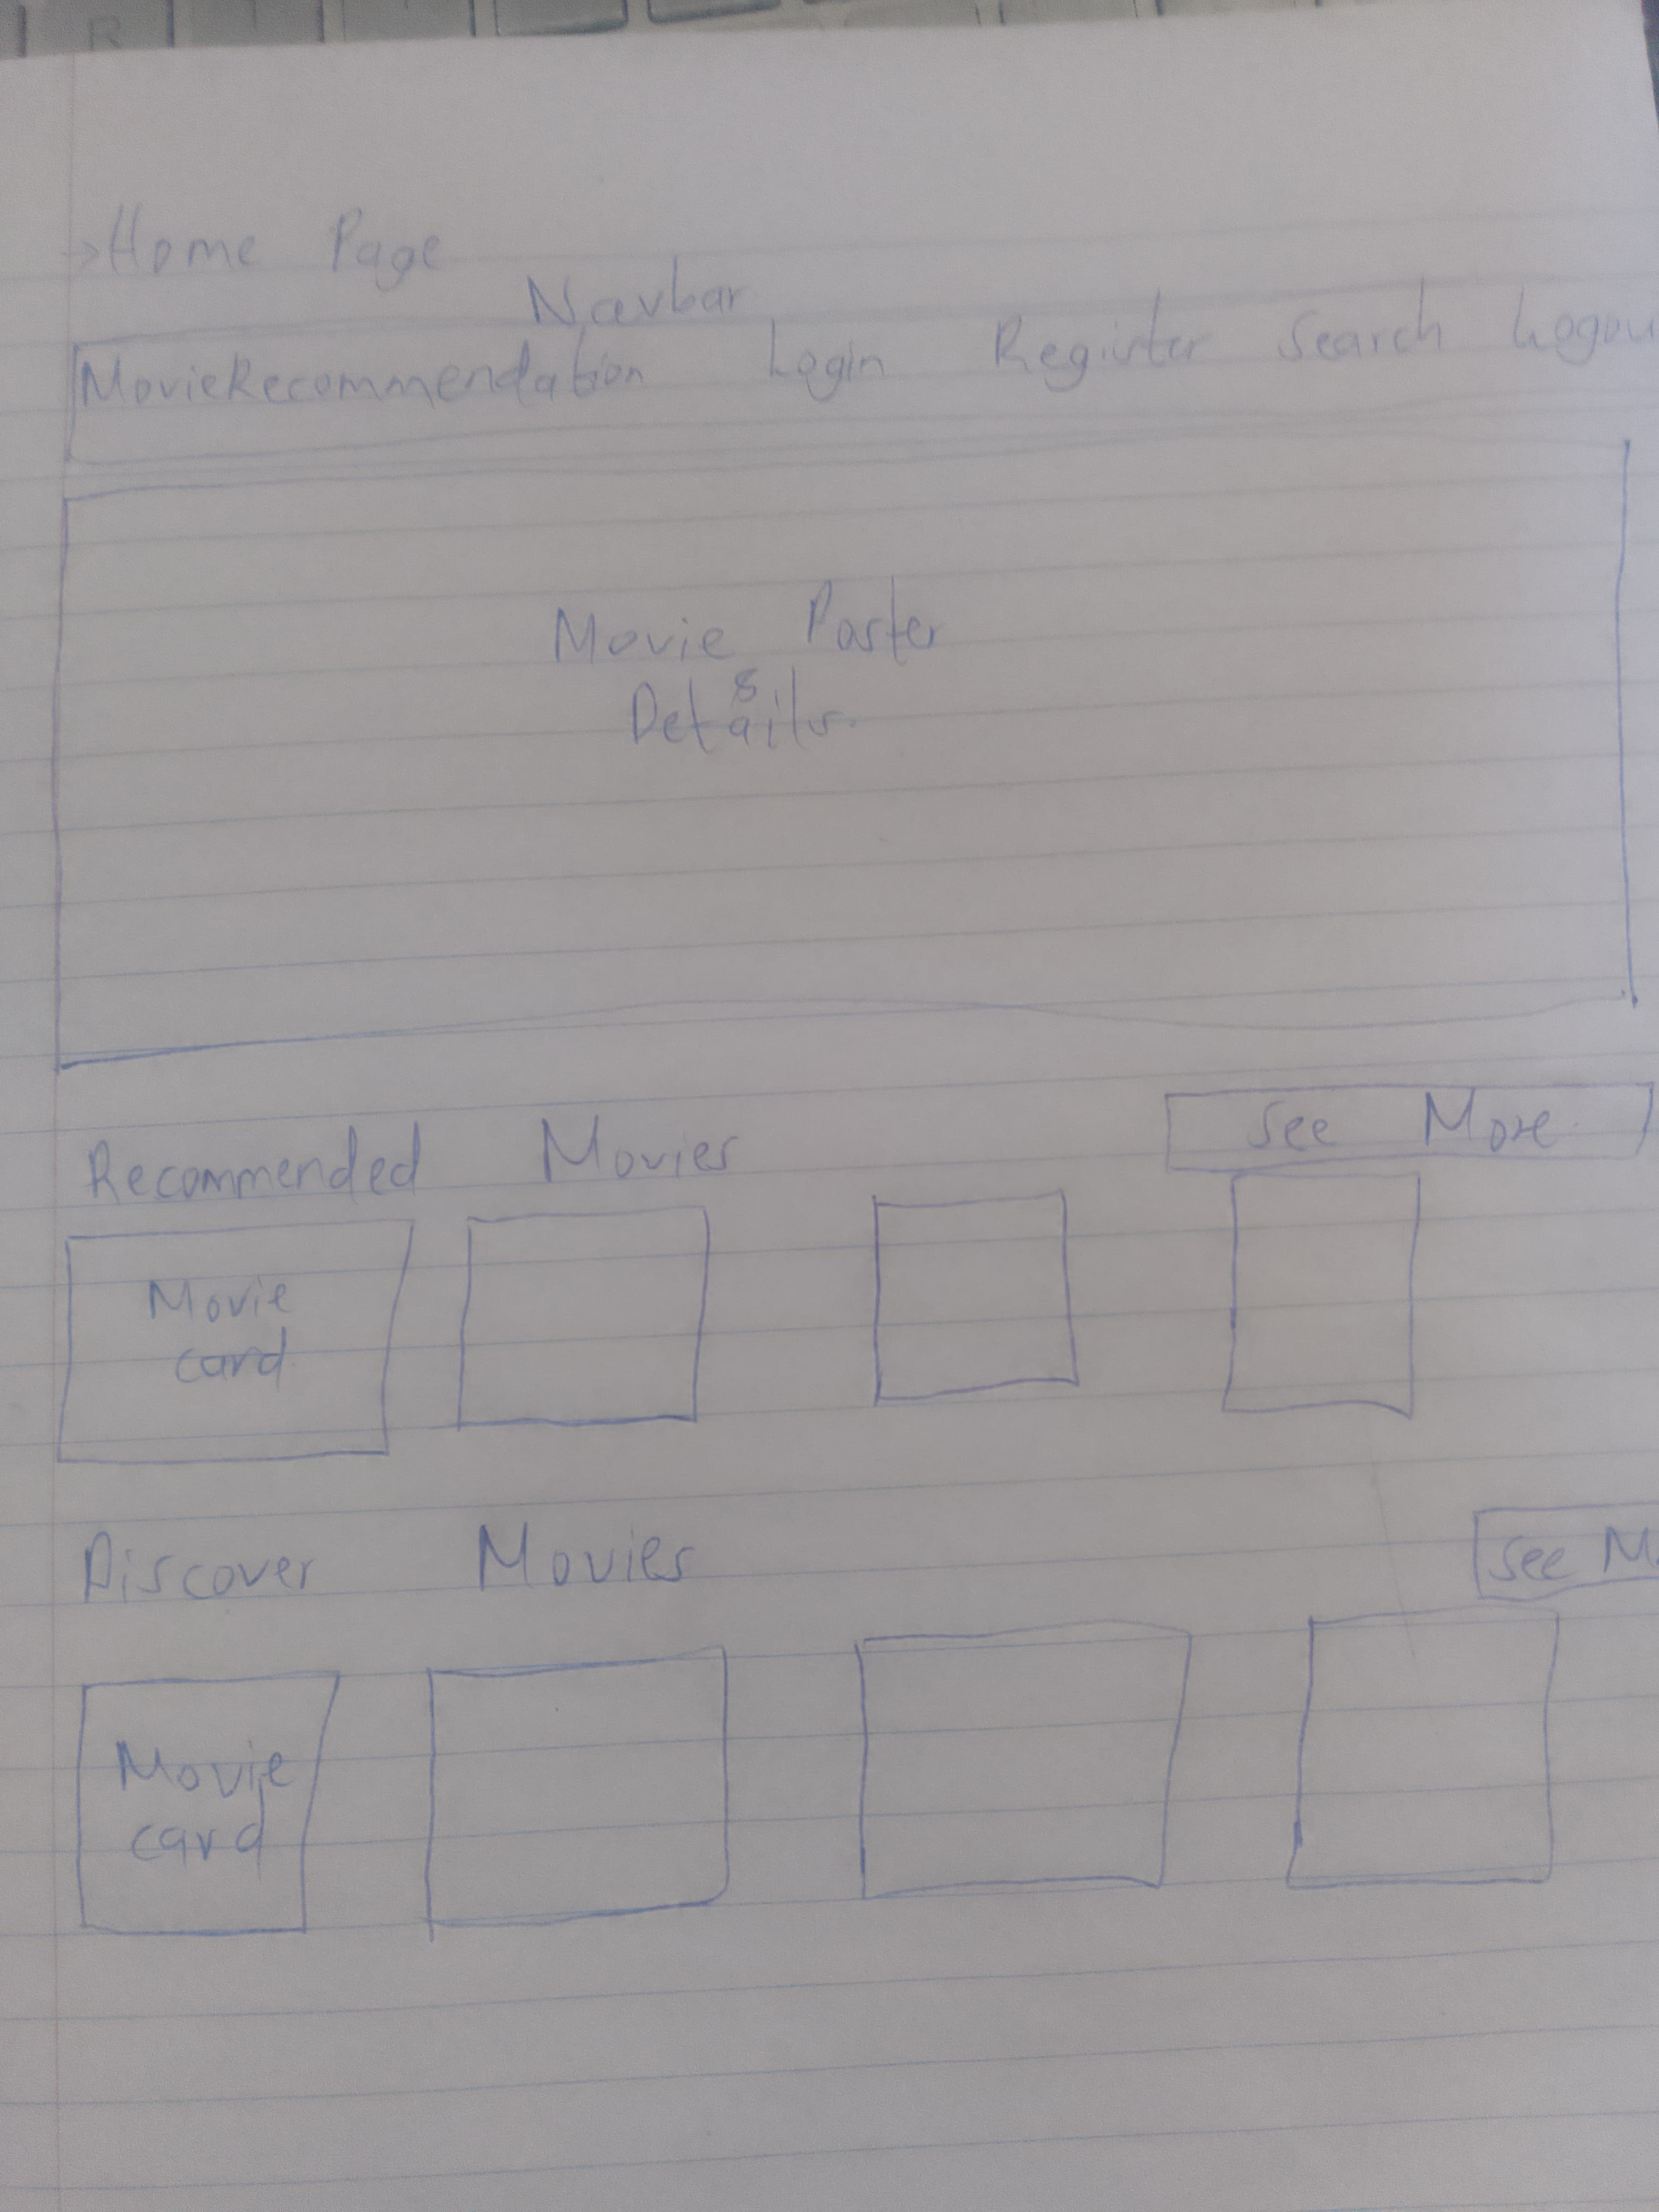 →Home Page
Navbar
MovieRecommendation Login Register Search Logou
Movie Poster
&
Details.
Recommended Movies See More.
Movie
card.
Discover Movies See M
Movie
card